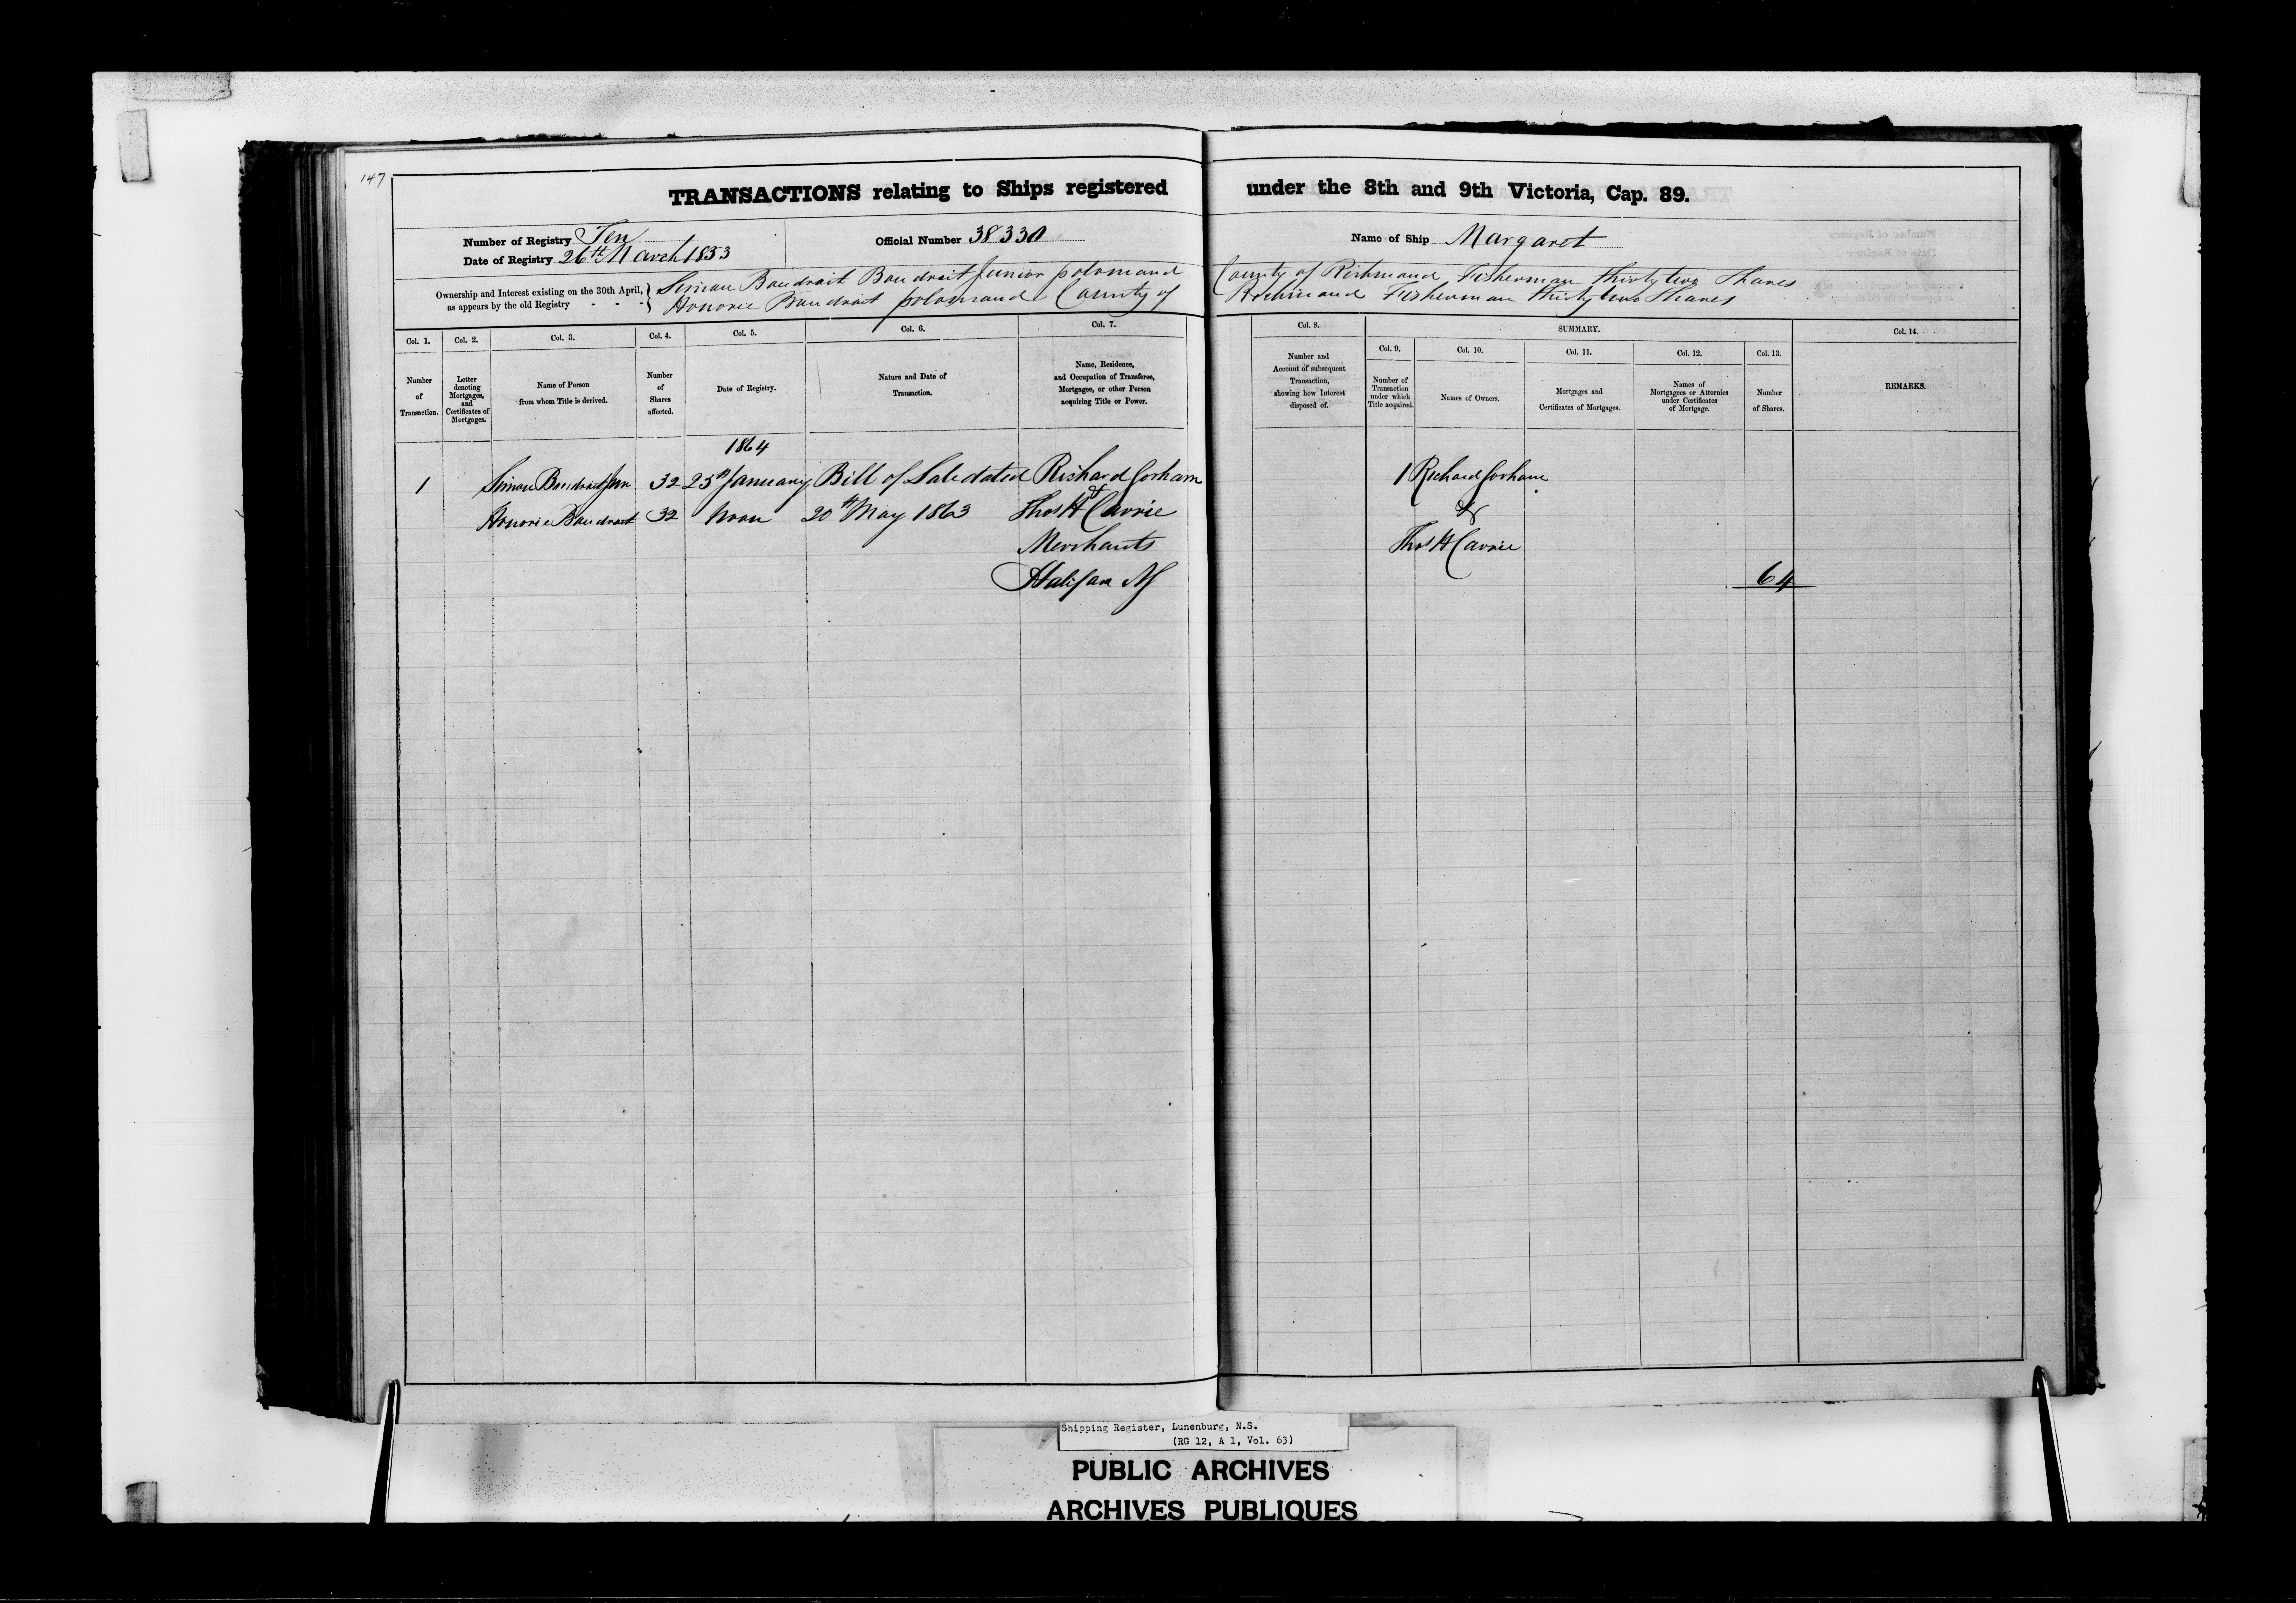 147
TRANSACTIONS relating to Ships registered under the 8th and 9th Victoria, Cap. 89.
Number of Registry Ten
Date of Registry 26th March 1853
Official Number 38330
Name of Ship Margaret
Ownership and Interest existing on the 30th April, as appears by the old Registry - - -
Simon Boudroit Boudroit Junior County of Richmond Fisherman thirty two Shares
Honorie Boudroit County of Richmond Fisherman thirty two Shares
Col. 1. Number of Transaction.
Col. 2. Letter denoting Mortgages, and Certificates of Mortgages.
Col. 3. Name of Person from whom Title is derived.
Col. 4. Number of Shares affected.
Col. 5. Date of Registry.
Col. 6. Nature and Date of Transaction.
Col. 7. Name, Residence, and Occupation of Transferee, Mortgagee, or other Person acquiring Title or Power.
Col. 8. Number and Account of subsequent Transaction, showing how Interest disposed of.
SUMMARY.
Col. 9. Number of Transaction under which Title acquired.
Col. 10. Names of Owners.
Col. 11. Mortgages and Certificates of Mortgages.
Col. 12. Names of Mortgagees or Attornies under Certificates of Mortgage.
Col. 13. Number of Shares.
Col. 14. REMARKS.
1864
1 Simon Boudroit Jun 32 25th January Bill of Sale dated Richard Gorham 1 Richard Gorham
Honorie Boudroit 32 Noon 20th May 1863 & Thos H Carrie &
Merchants Thos H Carrie
Halifax NS 64
Shipping Register, Lunenburg, N.S.
(RG 12, A 1, Vol. 63)
PUBLIC ARCHIVES
ARCHIVES PUBLIQUES